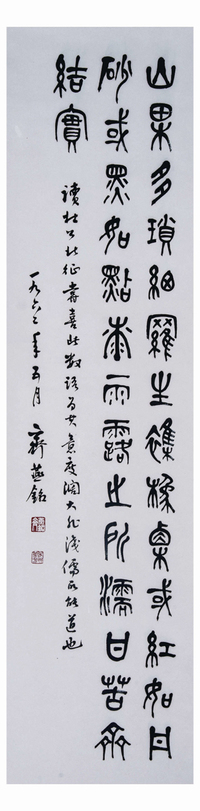 山果多瑣細羅生雜橡栗或紅如丹
砂或黑如點桼雨露之所濡甘苦齊
結實
讀杜公北征嘗喜此數語為其意度闊大非淺儒所能道也
一九六二年五月 齊燕銘